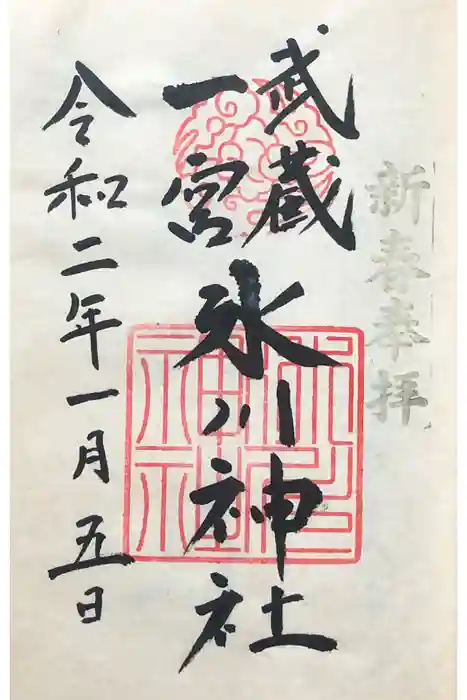 新春奉拝
武蔵
一宮
氷川神社
令和二年一月五日
氷川
神社